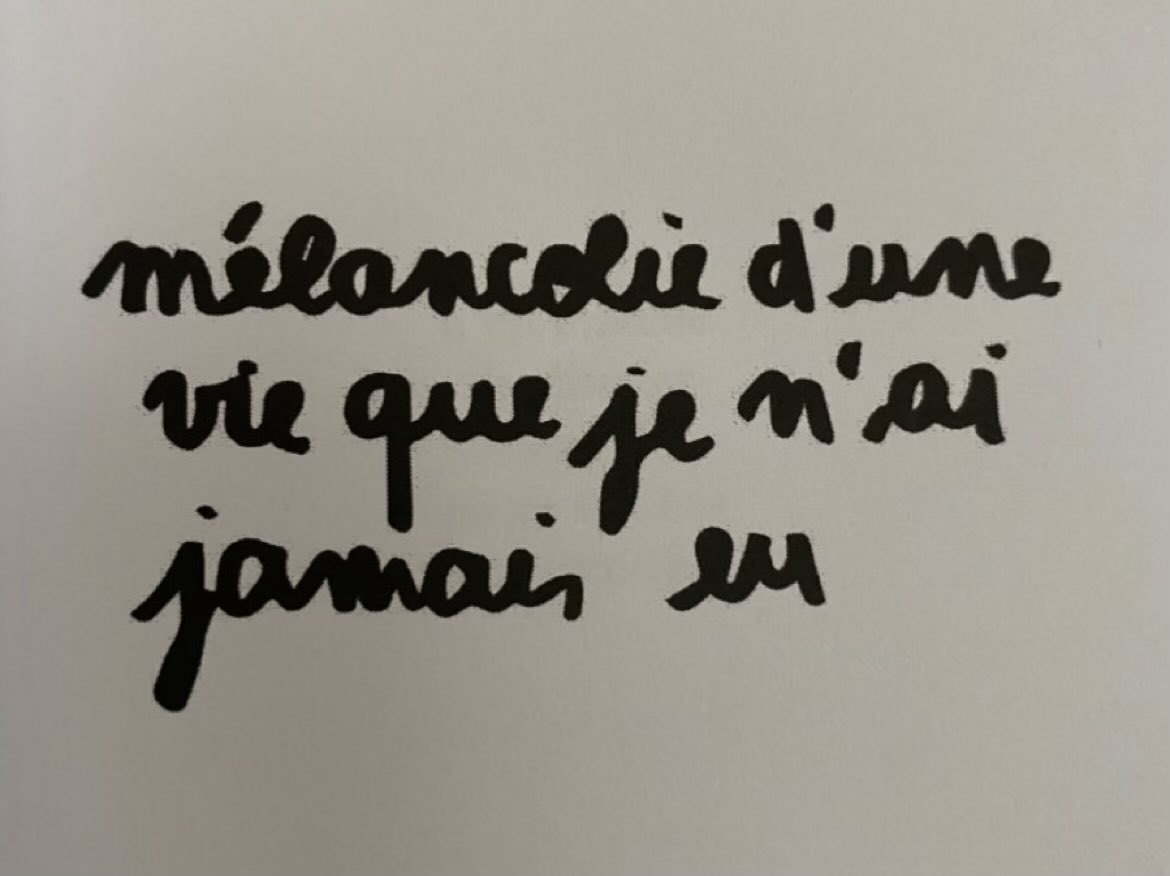 mélancolie d'une
vie que je n'ai
jamais eu